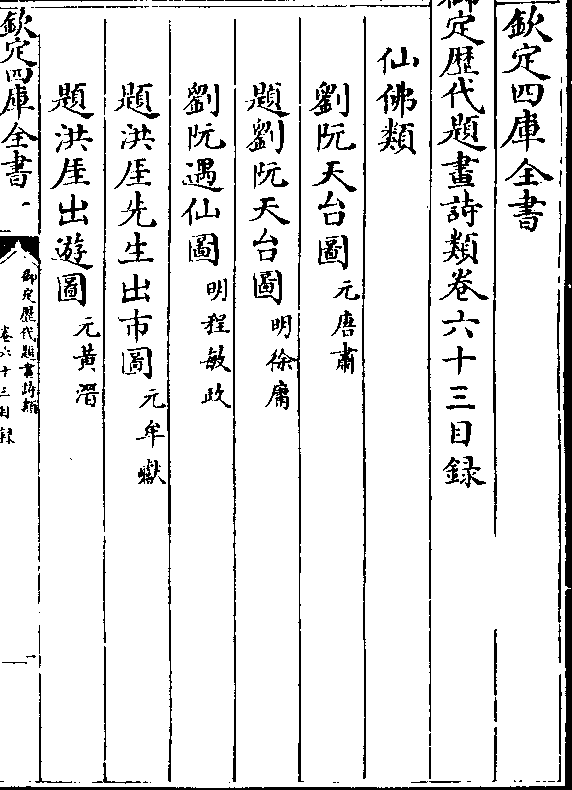 欽定四庫全書
御定歴代題畫詩類卷六十三目録
仙佛類
劉阮天台圖 元唐肅
題劉阮天台圖 明徐庸
劉阮遇仙圖 明程敏政
題洪厓先生出市圖 元牟巘
題洪厓出遊圖 元黃溍
欽定四庫全書
御定歷代題畫詩類
卷六十三目録
一